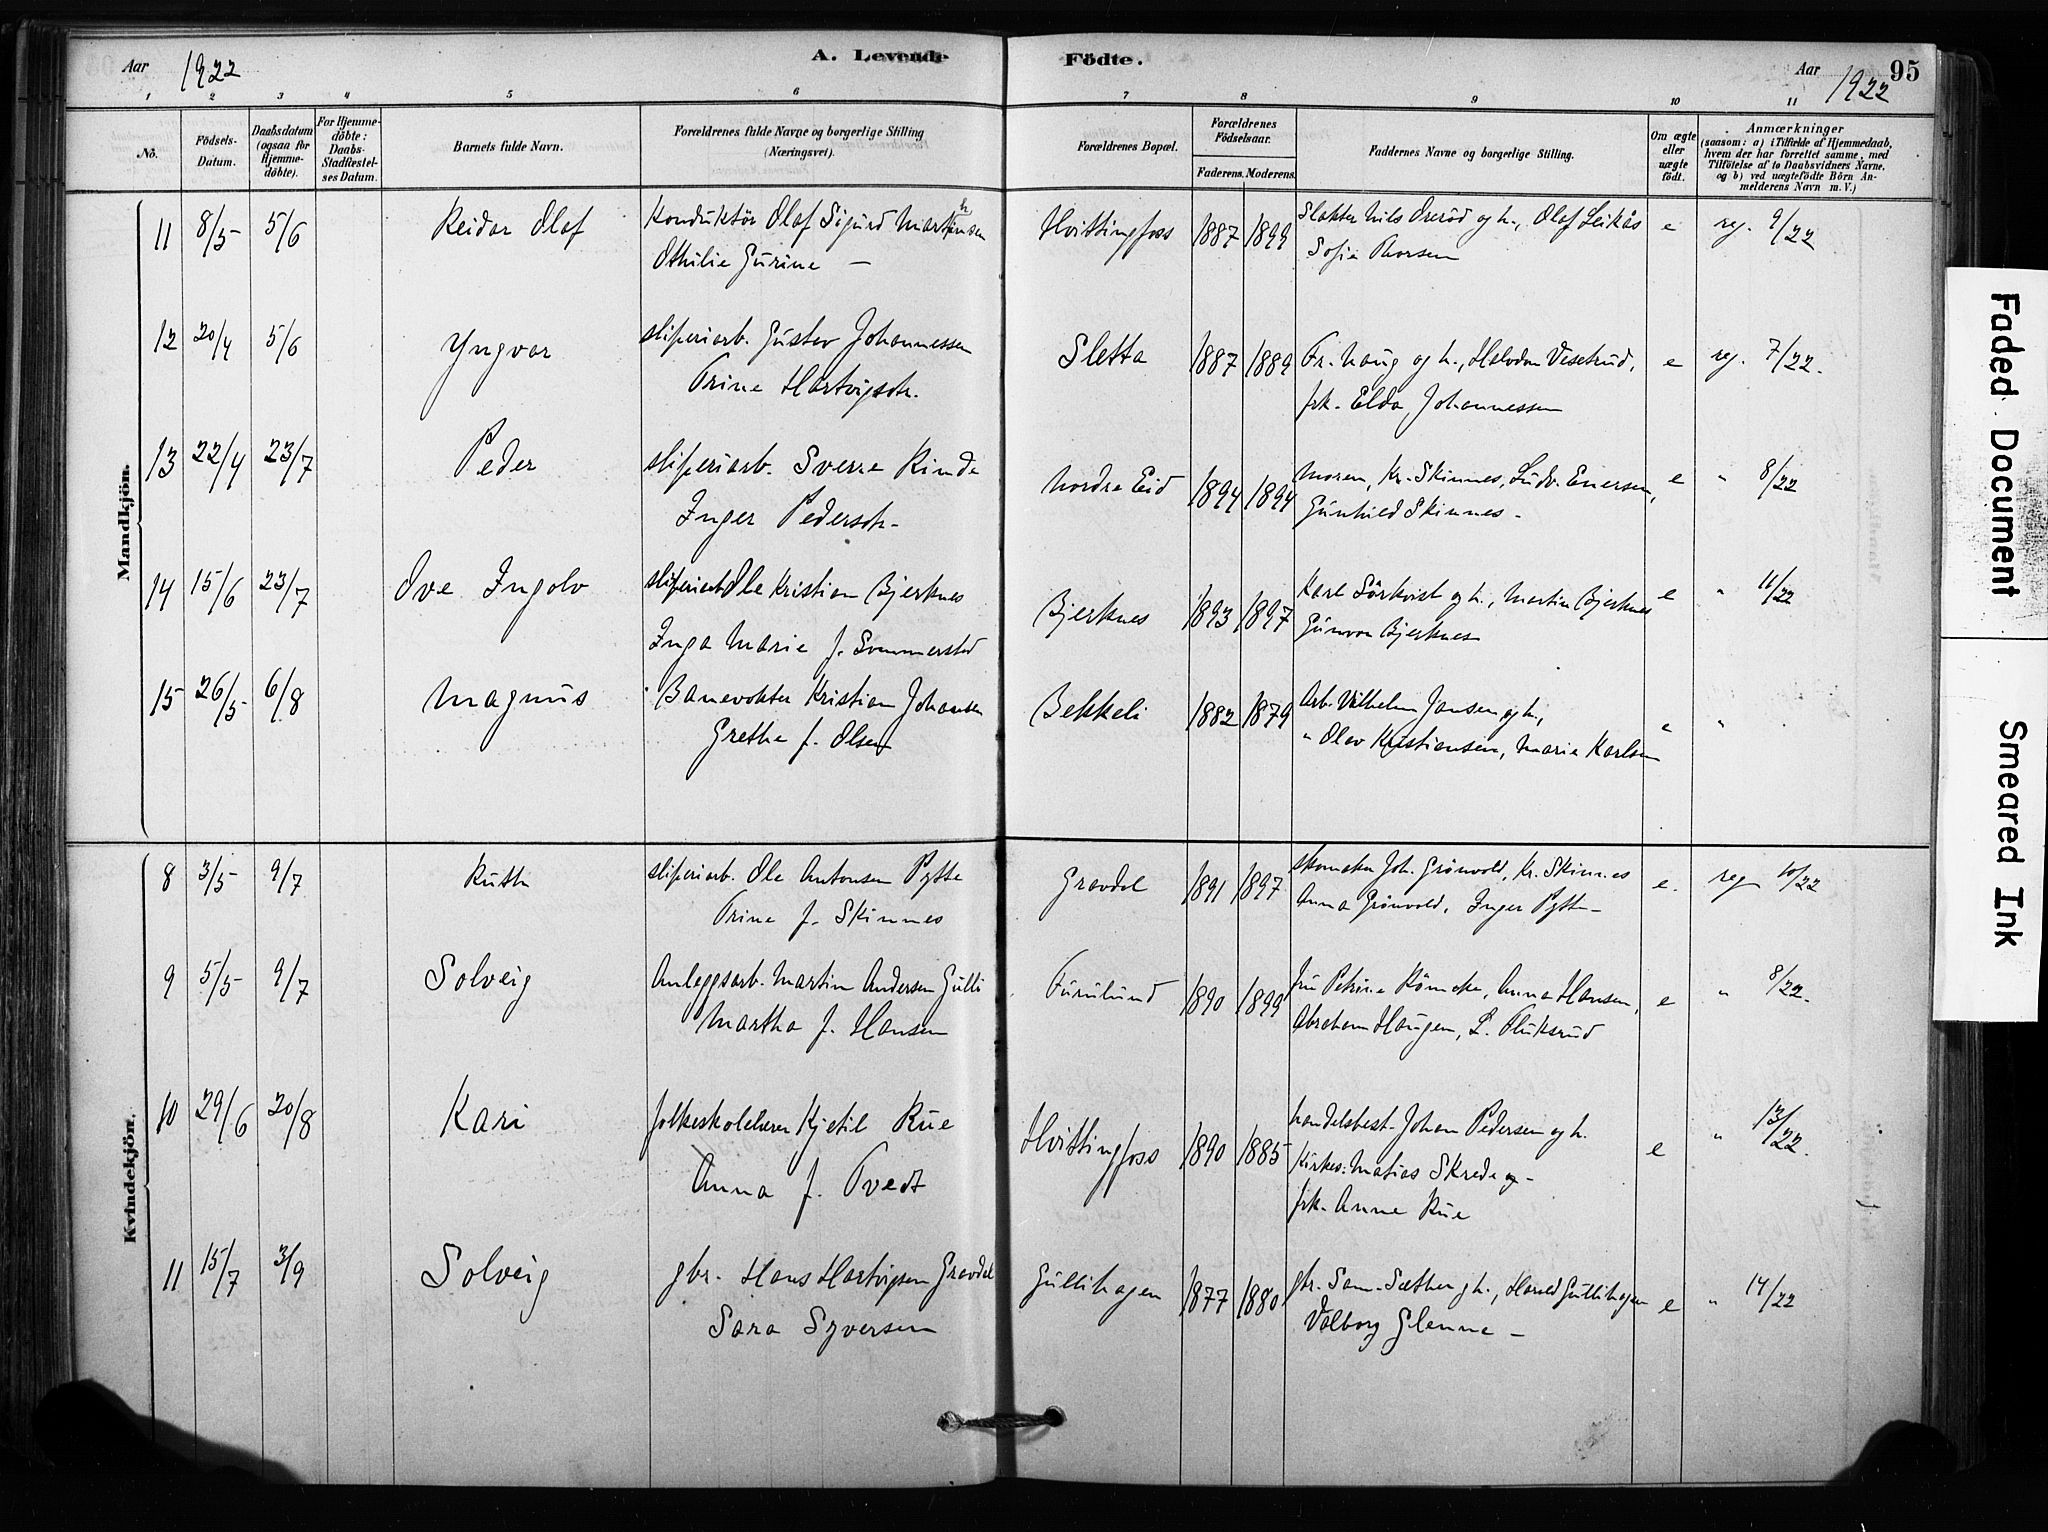 Aar 1922
A. Levende Födte.
Aar 1922
95
1 2 3 4 5 6 7 8 9 10 11
No.
Födsels-Datum.
Daabsdatum (ogsaa for Hjemme-döbte).
For Hjemme-döbte: Daabs-Stadfæstel-ses Datum.
Barnets fulde Navn.
Forældrenes fulde Navne og borgerlige Stilling (Næringsvei).
Forældrenes Bopæl.
Forældrenes Födselsaar.
Faderens. Moderens.
Faddernes Navne og borgerlige Stilling.
Om ægte eller uægte födt.
Anmærkninger
(saasom: a) i Tilfælde af Hjemmedaab, hvem der har forrettet samme, med Tilföielse af to Daabsvidners Navne, og b) ved uægtefödte Börn An-melderens Navn m. V.)
Mandkjön.
11 8/5 5/6 Reidar Olaf Konduktör Olaf Sigurd Martinsen Hvittingfoss 1887 1899 Nils og h., Olaf Leikås e reg. 9/22
Othilie Gurine — Sofie Thorsen
12 20/4 5/6 Yngvar sliperiarb. Gustav Johannessen Sletta 1887 1889 Fr. Haug og h., Halvdan Vesetrud, e reg. 7/22.
Trine Hartvigsdtr. frk. Elda Johannessen
13 22/4 23/7 Peder sliperiarb. Sverre Rinde Nordre Eid 1894 1894 moren, Kr. Skinnes, Ludv. Enersen, e " 8/22
Inger Pedersdtr. Gunhild Skinnes -
14 15/6 23/7 Ove Ingolv sliperiarb Ole Kristian Bjerknes Bjerknes 1893 1897 Karl Sörkvist og h., Martin Bjerknes e " 11/22
Inga Marie f. Sommerstad Gunvor Bjerknes
15 26/5 6/8 Magnus Banevokter Kristian Johansen Bekkeli 1882 1879 Arb. Vilhelm Jansen og h., " "
Grethe f. Olsen " Olav Kristiansen, Marie Karlsen
Kvindekjön.
8 3/5 9/7 Ruth sliperiarb. Ole Antonsen Pytte Gravdal 1891 1897 skomaker Joh. Grönvold, Kr. Skinnes e. reg 10/22
Trine f. Skinnes Anna Grönvold, Inger Pytte -
9 5/5 9/7 Solveig Anleggsarb. Martin Andersen Gulli Furulund 1890 1899 fru Petrine Römcke, Anna Hansen, e " 8/22.
Martha f. Hansen Abraham Haugen, L. Fluksrud
10 29/6 20/8 Kari folkeskolelærer Kjetil Rue Hvittingfoss 1890 1885 handelsbest. Johan Pedersen og h. e " 13/22.
Anna f. Tvedt Kirkes. Matias Skrede og -
frk. Anne Rue
11 15/7 3/9 Solveig gbr. Hans Hartvigsen Gravdal Gullihagen 1877 1880 gbr. Sam. Sæther og h., Harald Gullihagen e " 14/22
Sara Syversen Valborg Glenne -
Faded Document
Smeared Ink